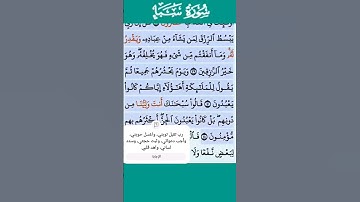 سورة سبإ
يَبْسُطُ ٱلرِّزْقَ لِمَن يَشَآءُ مِنْ عِبَادِهِۦ وَيَقْدِرُ
لَهُۥ وَمَآ أَنفَقْتُم مِّن شَىْءٍ فَهُوَ يُخْلِفُهُۥ وَهُوَ
خَيْرُ ٱلرَّٰزِقِينَ ٣٩ وَيَوْمَ يَحْشُرُهُمْ جَمِيعًا ثُمَّ
يَقُولُ لِلْمَلَٰٓئِكَةِ أَهَٰٓؤُلَآءِ إِيَّاكُمْ كَانُوا۟
يَعْبُدُونَ ٤٠ قَالُوا۟ سُبْحَٰنَكَ أَنتَ وَلِيُّنَا مِن
دُونِهِم بَلْ كَانُوا۟ يَعْبُدُونَ ٱلْجِنَّ أَكْثَرُهُم بِهِم
مُّؤْمِنُونَ ٤١
لِبَعْضٍ نَّفْعًا وَلَا
رب تقبل توبتي، واغسل حوبتي،
وأجب دعوتي، وثبت حجتي، وسدد
لساني، واهد قلبي